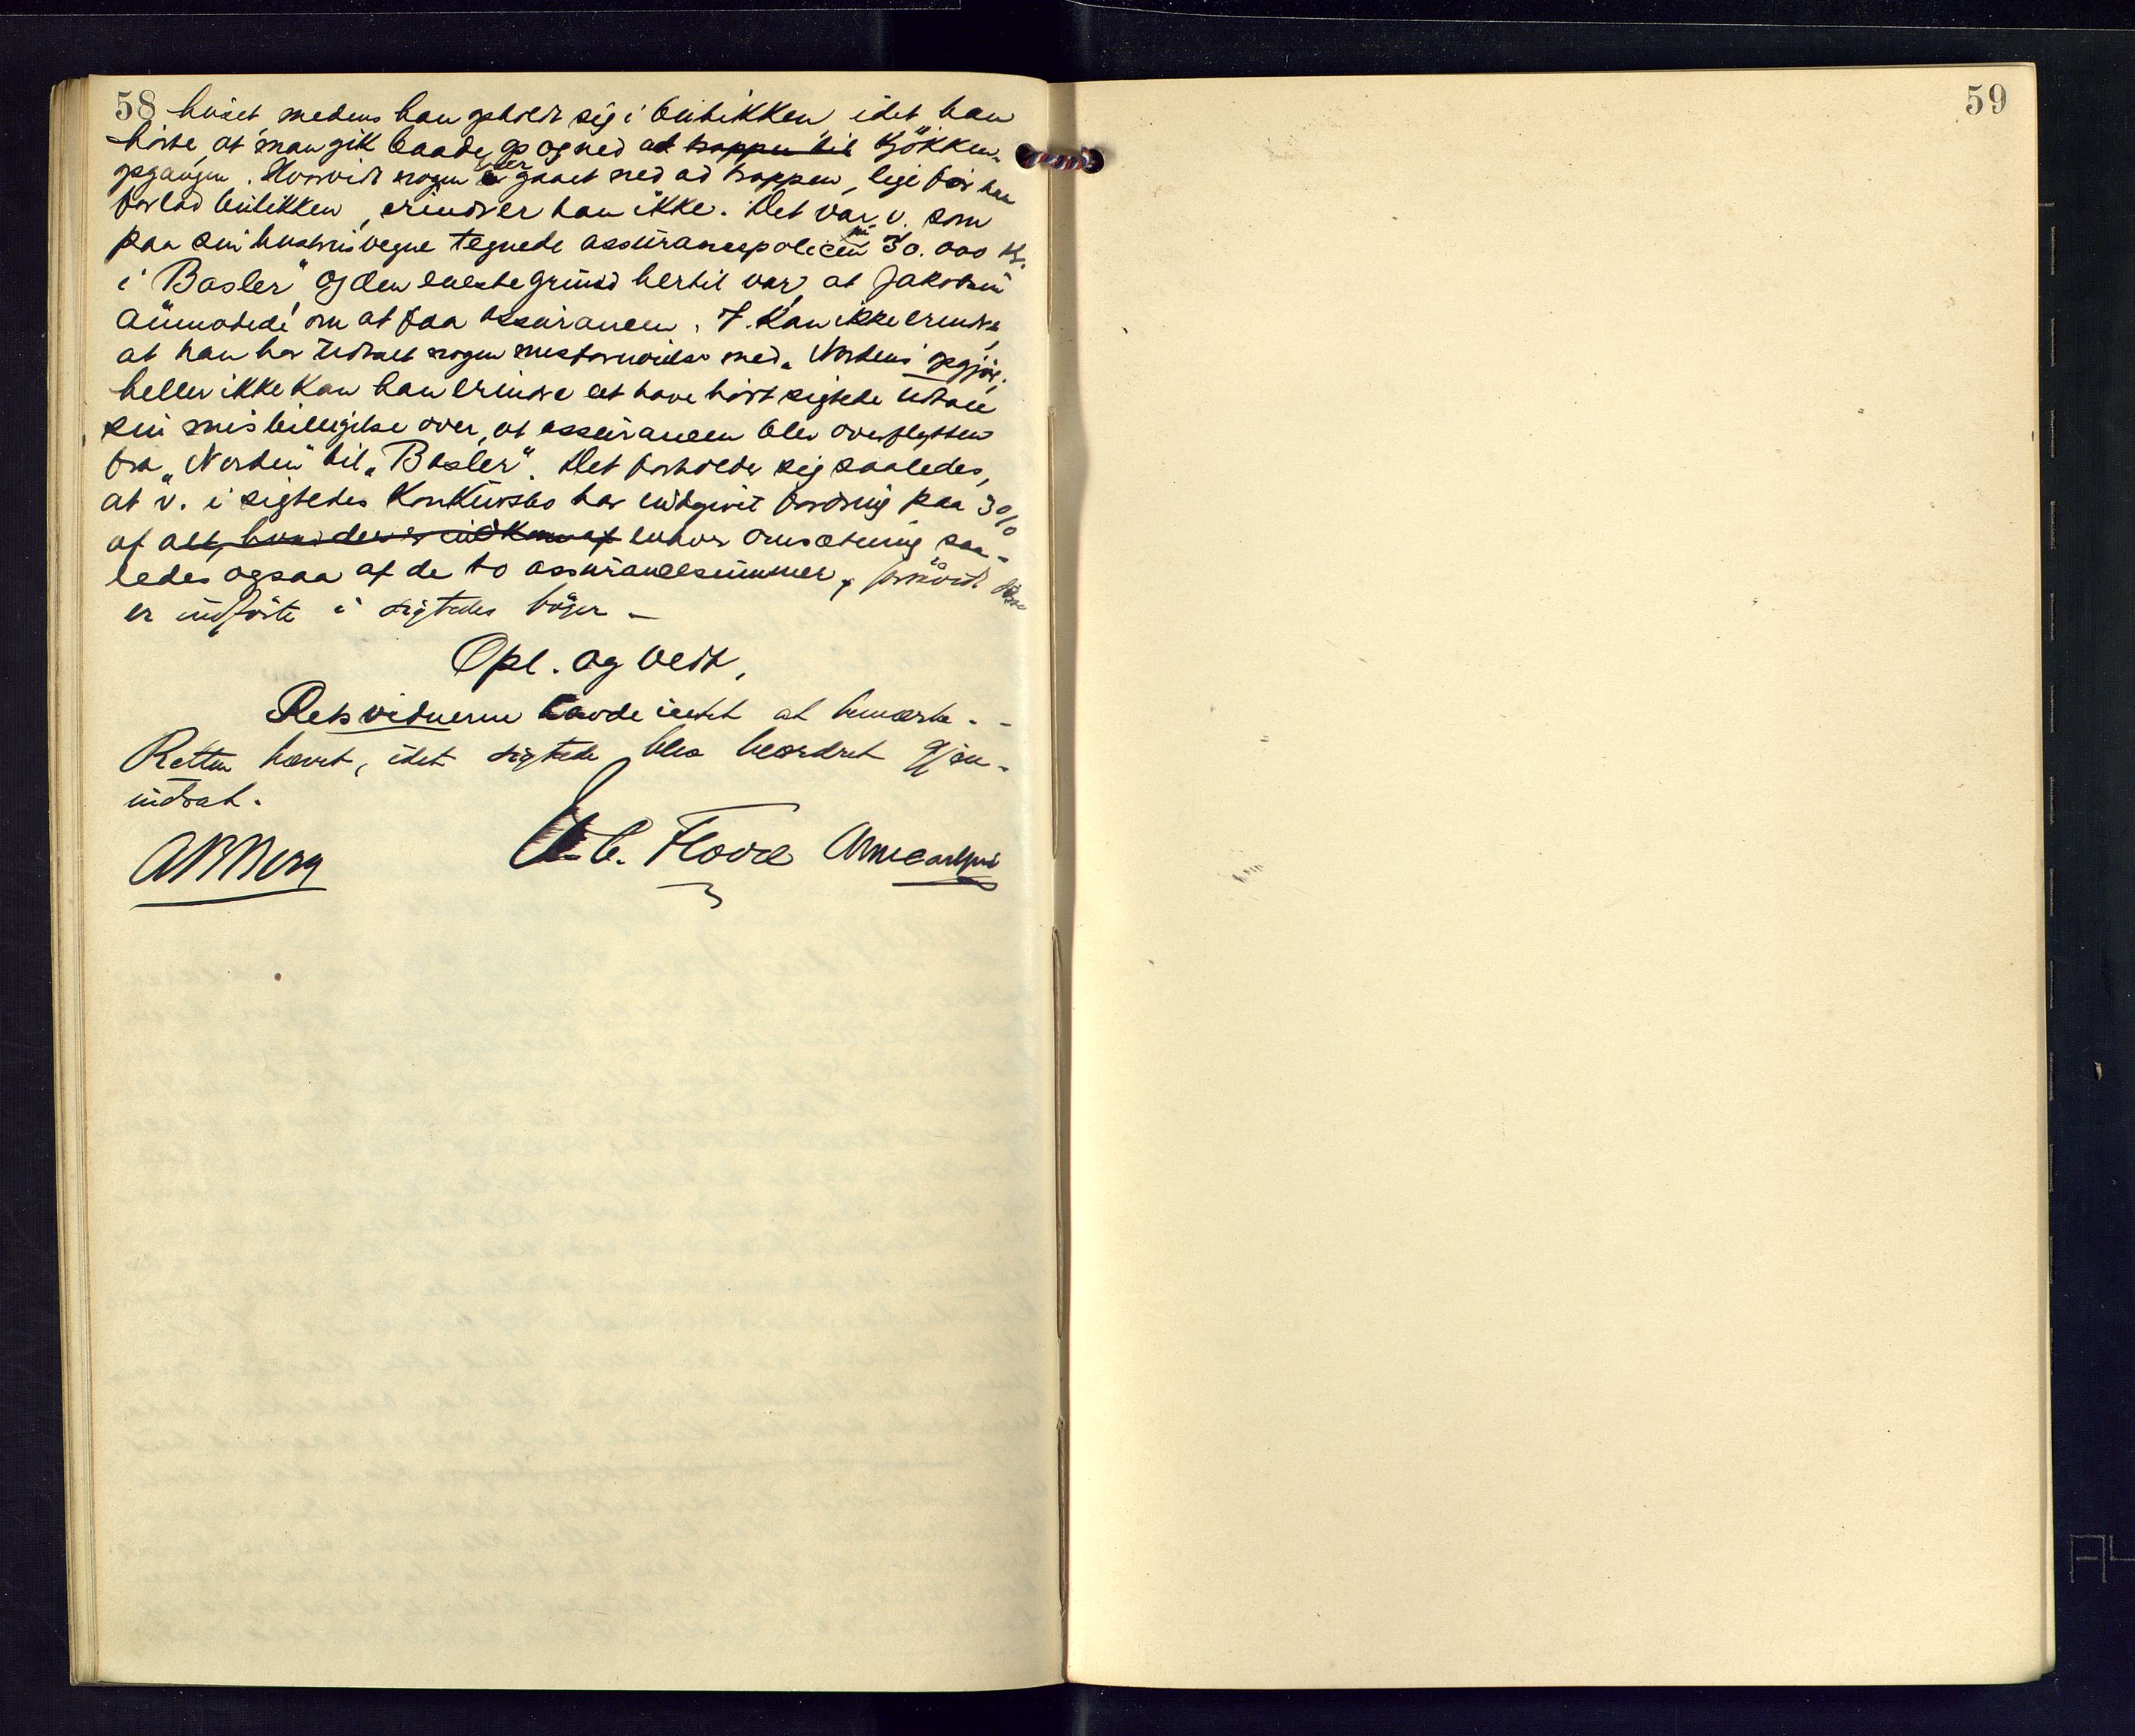 58 huset medens han opholdt sig i butikken idet han
hörte, at man gik baade op og ned ad trappen til Kjökken-
opgangen. Hvorvidt nogen er gaaet ned ad trappen, lige för han
forlod butikken, erindrer han ikke. Det var v. som
paa sin hustrus vegne tegnede assurancepolicen 30.000 Kr.
i „Basler" og den eneste grund hertil var, at Jakobsen
anmodede om at faa assurancen. V. kan ikke erindre,
at han har udtalt nogen misfornöielse med „Nordens" opgjör,
heller ikke kan han erindre at have hört sigtede udtale
sin misbilligelse over, at assurancen blev overflyttet
fra „Norden" til „Basler". Det forholder sig saaledes,
at v. i sigtedes Konkursbo har indgivet fordring paa 3%
af alt, hvad der er indkommet enhver omsætning saa-
ledes ogsaa af de to assurancesummer, forsaavidt disse
er indförte i sigtedes böger –
Opl. og vedt.
Retsvidnerne havde intet at bemærke. –
Retten hævet, idet sigtede blev beordret gjen-
indsat.
E. C. Flovd
59